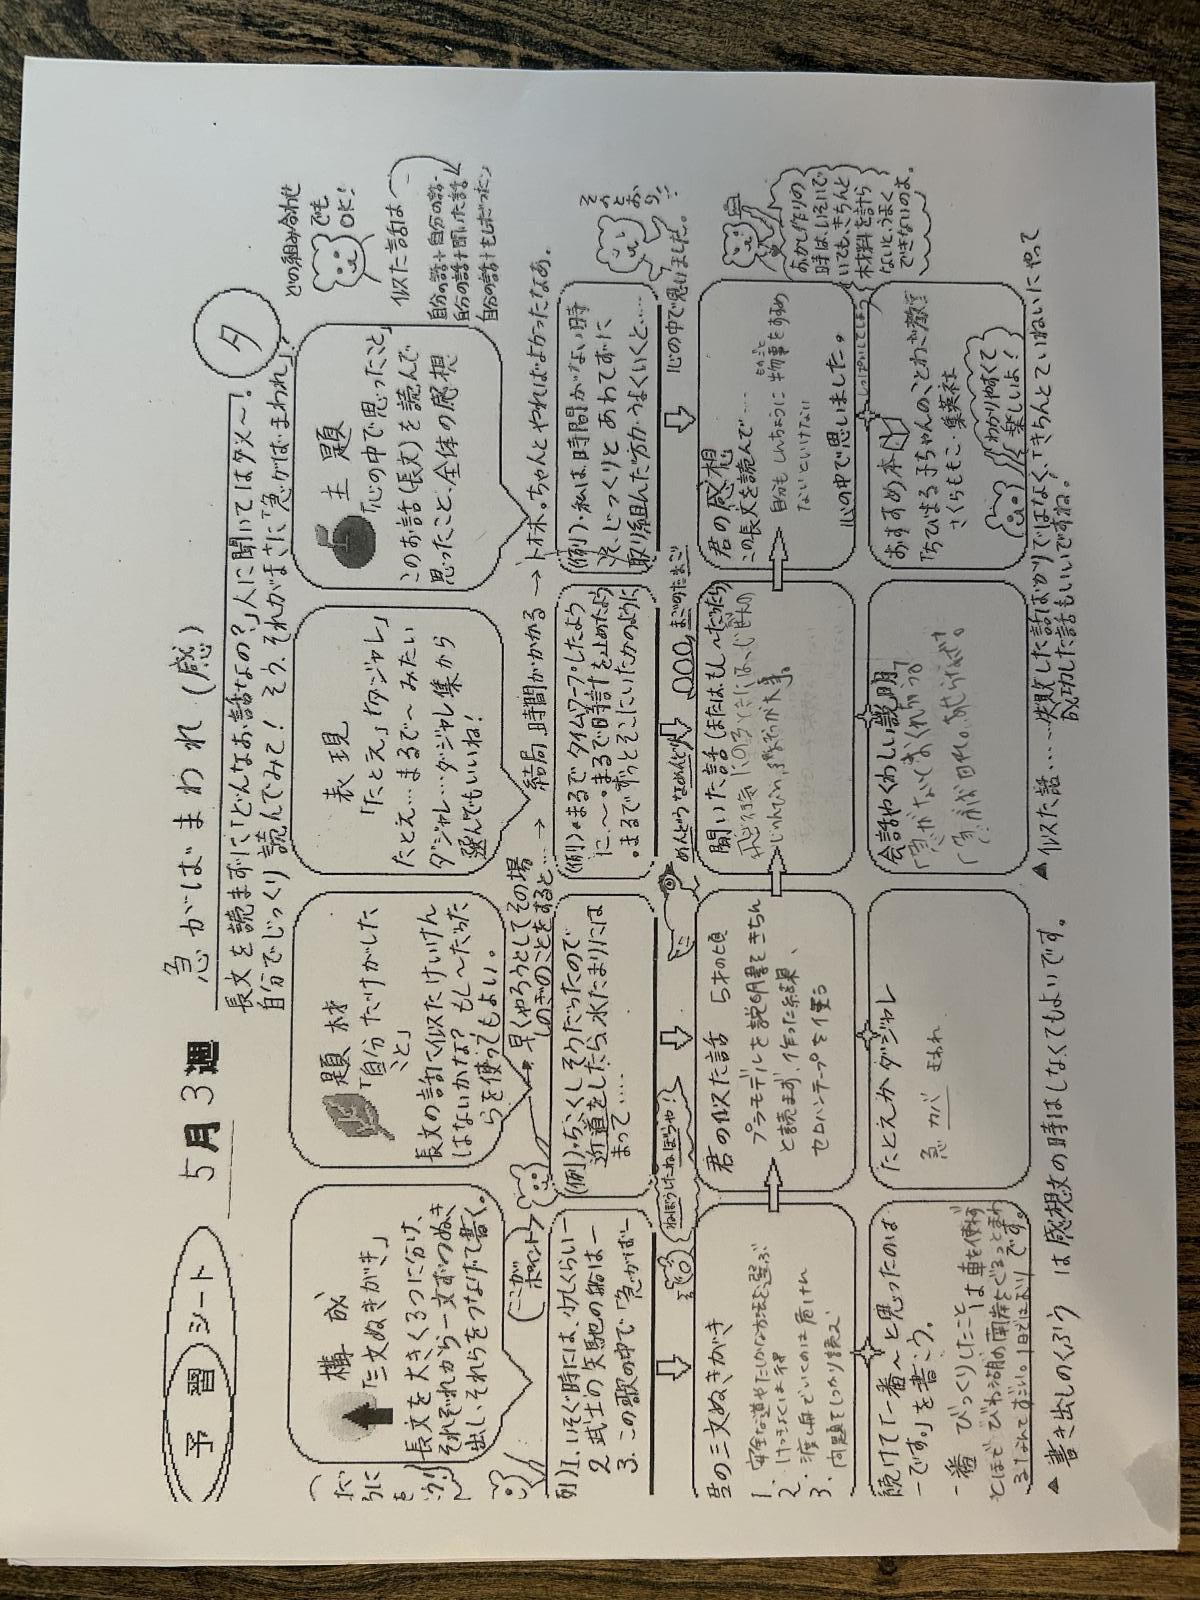 予習シート
5月3週
急がばまわれ(感)
タ
長文を読まずに「どんなお話なの?」人に聞いてはダメ〜!
自分でじっくり読んでみて! そう、それがまさに「急がばまわれ」!
どの組み合わせ
でも
OK!
構成
「三文ぬきがき」
長文を大きく3つに分け、
それぞれから一文ずつぬき
出し、それらをつなげて書く。
題材
「自分だけがした
こと」
長文の話で似たけいけん
はないかな? もし〜たら
らを使ってもよい。
表現
「たとえ」「ダジャレ」
たとえ…まるで〜みたい
ダジャレ…ダジャレ集から
選んでもいいね!
主題
「心の中で思ったこと」
このお話(長文)を読んで
思ったこと、全体の感想
似た話は
自分の話+自分の話
自分の話+聞いた話
ここが
ポイント
早くやろうとしてその場
しのぎのことをすると…
→ 結局、時間がかかる →
ちゃんとやればよかったなあ。
例)1. いそぐ時には、小さくらい−
2. 武士の矢馳の船は−
3. この歌の中で「急がば−
(例)・ぬらくしそうだったので
近道をしたら、水たまりには
まって……
(例)・まるでタイムワープしたよう
に〜・まるで時計を止めたよう
・まるでずっとそこにいたかのように
(例)、私は、時間がない時
ほど、じっくりとあわてずに
取り組んだ方がうまくいくと……
その
とおり!!
ねぼうしたね、ぼうや!
めんどうなめんどり
まごのたまご
心の中で思いました。
君の三文ぬきがき
1、安全な道やたしかな方法を選ぶ
2、けっきょくは得
3、渡し舟でいくのは危けん
問題をしっかり読ス
君の似た話 5才の頃
プラモデルを説明書をきちん
と読まず、作った結果、
セロハンテープを使う
聞いた話(またはもし〜だったら)
君の感想
この長文を読んで……
自分もしんちょうに物事をすすめ
ものごと
ないといけない
心の中で思いました。
おかし作りの
時は、いそいで
いても、きちんと
材料を計ら
ないと、うまく
できないのよ。
続けて「一番〜と思ったのは
−です。」を書こう。
一番びっくりしたこと
は車を使わず
たとえかダジャレ
急 カバ まわれ
会話やくわしい説明
おすすめ本
「ちびまる子ちゃんのことわざ教室」
さくらももこ・集英社
わかりやすくて
楽しいよ!
▲ 書き出しのくふう は感想文の時はしなくてもよいです。
▲ 似た話……失敗した話ばかりではなく、「きちんとていねいにやって
成功した話もいいですね。